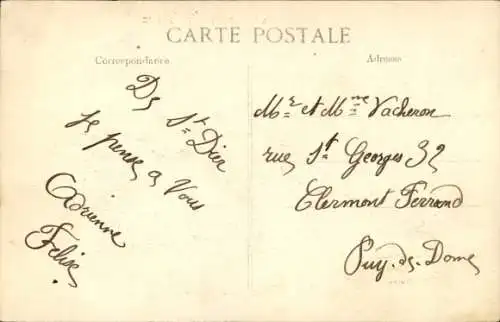 CARTE POSTALE
Correspondance
Adresse
De
St Dier
Je pense a Vous
Adrienne
Felix.
Mr et Mme Vacheron
rue St Georges 32
Clermont Ferrand
Puy-de-Dome